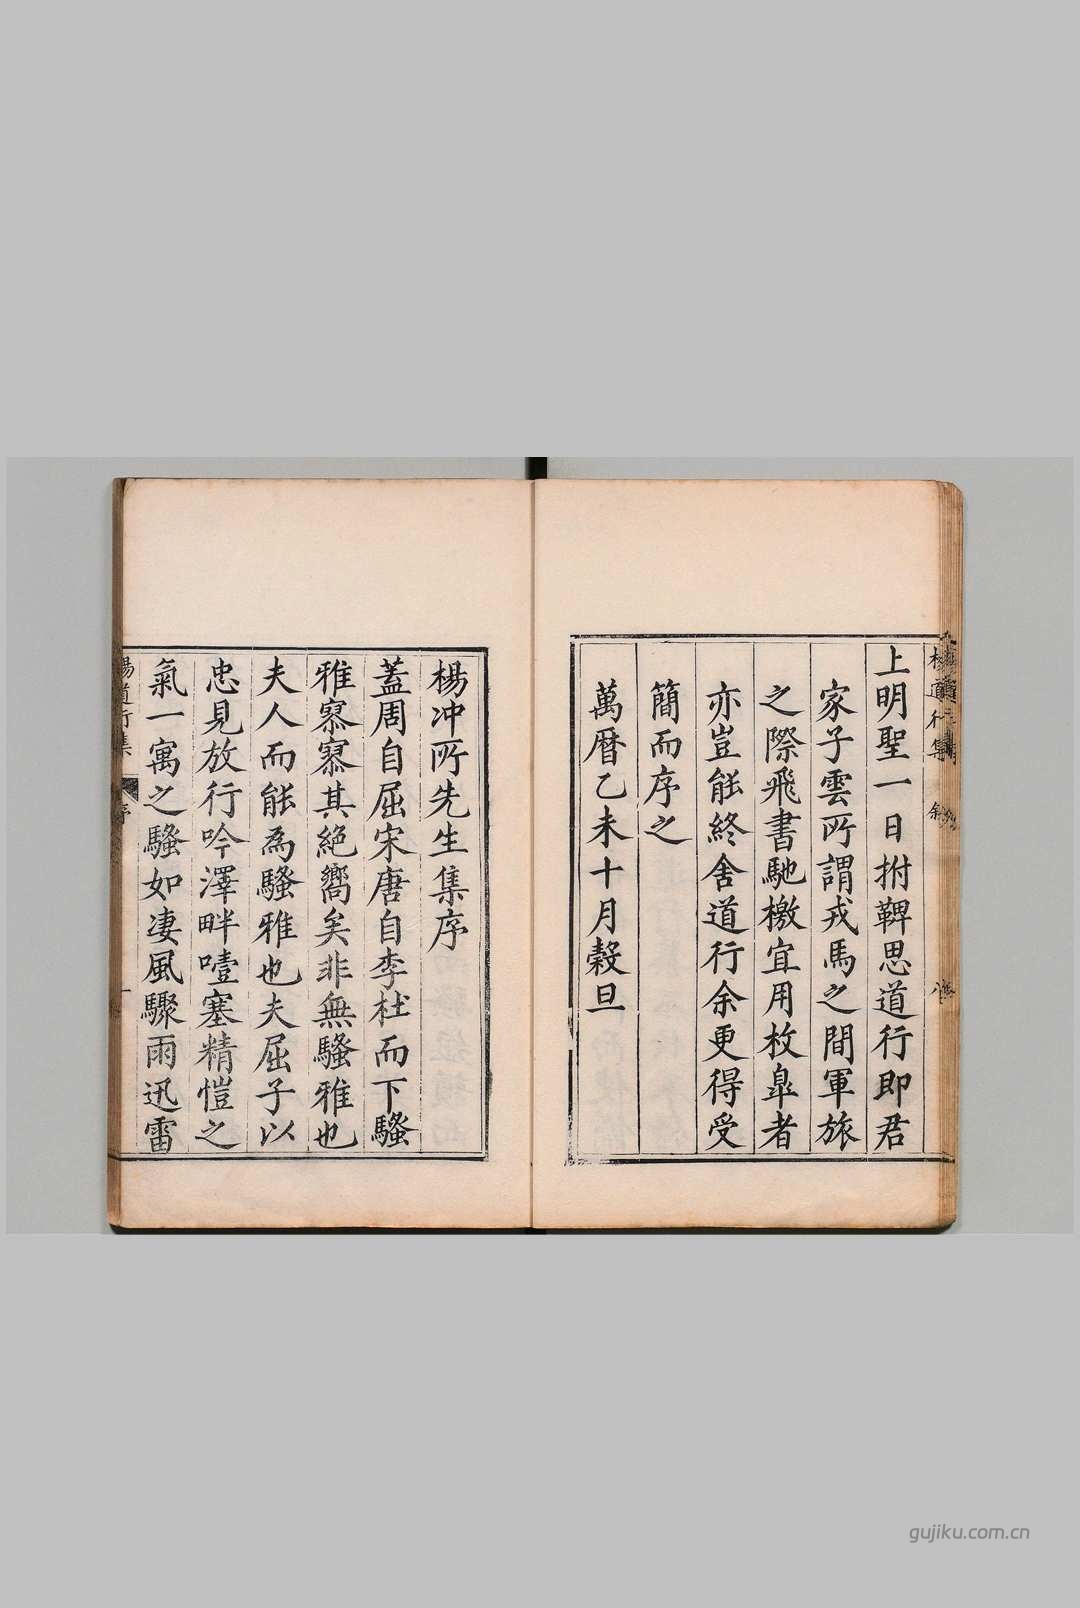 上明聖一日拊鞞思道行即君
家子雲所謂戎馬之間軍旅
之際飛書馳檄宜用枚臯者
亦豈能終舍道行余更得受
簡而序之
萬曆乙未十月穀旦
楊冲所先生集序
蓋周自屈宋唐自李杜而下騷
雅寥寥其絕嚮矣非無騷雅也
夫人而能為騷雅也夫屈子以
忠見放行吟澤畔噎塞精愷之
氣一寓之騷如凄風驟雨迅雷
楊道行集
序
一
gujiku.com.cn